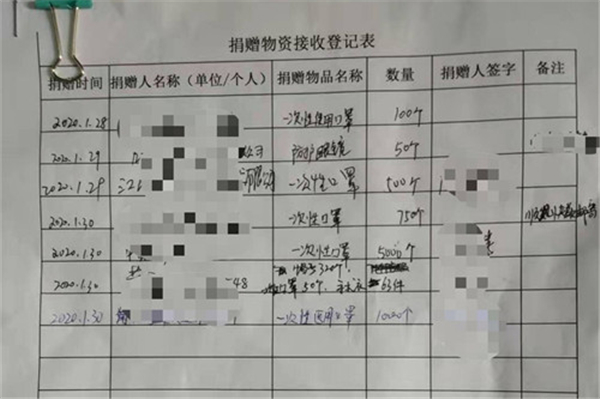 捐赠物资接收登记表
捐赠时间 捐赠人名称（单位/个人） 捐赠物品名称 数量 捐赠人签字 备注
2020.1.28 一次性使用口罩 100个
2020.1.29 公司 防护眼镜 50个
2020.1.29 一次性口罩 500个
2020.1.30 一次性口罩 750个
2020.1.30 一次性口罩 5000个
2020.1.30 48 口罩50个 63件
2020.1.30 一次性医用口罩 1000个